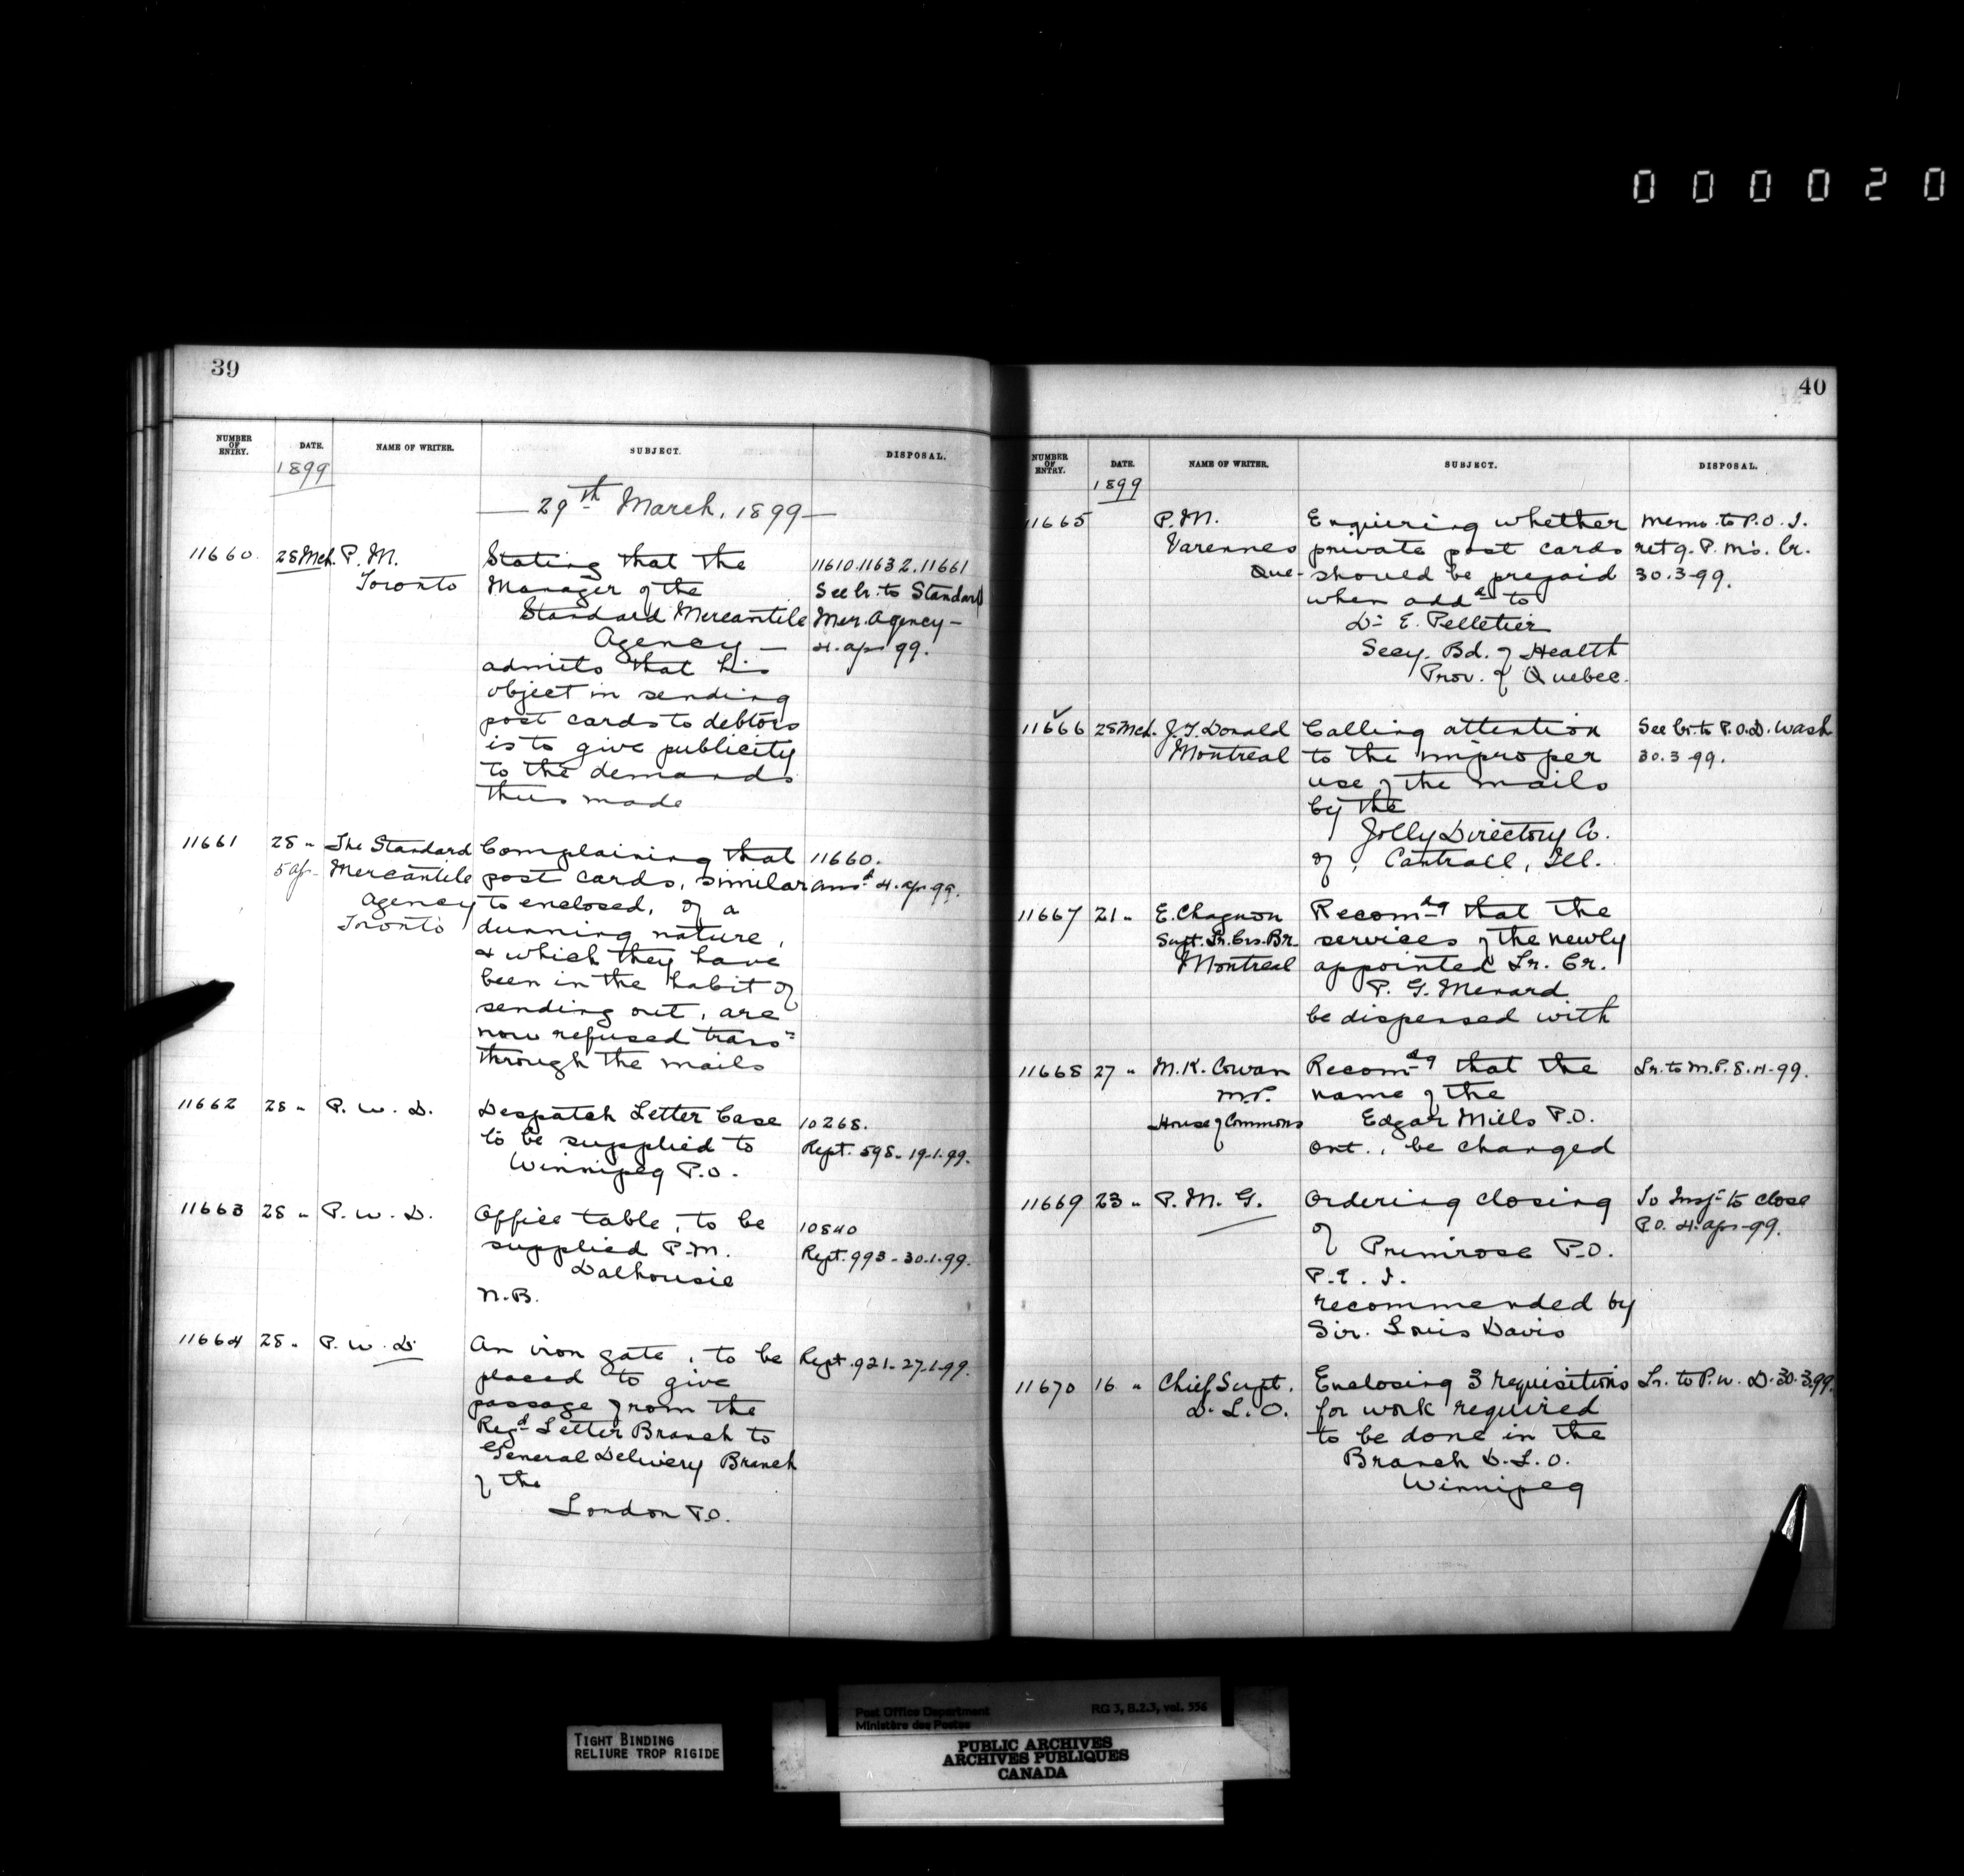 000020
39
NUMBER OF ENTRY. DATE. NAME OF WRITER. SUBJECT. DISPOSAL.
1899
29th March, 1899
11660. 28 Mch. P. M. Stating that the 11610.11632.11661
Toronto Manager of the See lr. to Standard
Standard Mercantile Mer. Agency —
Agency — 4. ap 99.
admits that his
object in sending
post cards to debtors
is to give publicity
to the demands
thus made
11661 28 " The Standard Complaining that 11660.
5 ap - Mercantile post cards, similar ansd 4. ap. 99.
Agency to enclosed, of a
Toronto dunning nature,
& which they have
been in the habit of
sending out, are
now refused transn
through the mails
11662 28 " P. W. D. Despatch Letter Case 10268.
to be supplied to Rept. 598. 19.1.99.
Winnipeg P.O.
11663 28 " P. W. D. Office table, to be 10840
supplied P.M. Rept. 993 - 30.1.99.
Dalhousie
N.B.
11664 28 " P. W. D. An iron gate, to be Rept. 921 - 27.1.99.
placed to give
passage from the
Regd Letter Branch to
General Delivery Branch
of the
London P.O.
40
NUMBER OF ENTRY. DATE. NAME OF WRITER. SUBJECT. DISPOSAL.
1899
11665 P.M. Enquiring whether Memo. to P.O.I.
Varennes private post cards retg. P. M's. lr.
Que - should be prepaid 30.3.99.
when addd to
Dr E. Pelletier
Secy. Bd. of Health
Prov. of Quebec.
11666 28 Mch. J. T. Donald Calling attention See lr. to P.O.D. Wash
Montreal to the improper 30.3.99.
use of the mails
by the
Jolly Directory Co.
of Cantrall, Ill.
11667 21 " E. Chagnon Recomdg that the
Supt. Lr. Crs. Br. services of the newly
Montreal appointed Lr. Cr.
P. G. Menard
be dispensed with
11668 27 " M. K. Cowan Recomdg that the Lr. to M.P. 8.4.99.
M.P. name of the
House of Commons Edgar Mills P.O.
Ont., be changed
11669 23 " P. M. G. Ordering closing To Inspr to close
of P.O. 4. ap. 99.
Primrose P.O.
P.E.I.
recommended by
Sir. Louis Davis
11670 16 " Chief Supt. Enclosing 3 requisitions Lr. to P.W.D. 30.3.99.
D. L. O. for work required
to be done in the
Branch D.L.O.
Winnipeg
TIGHT BINDING
RELIURE TROP RIGIDE
Post Office Department RG 3, B.2.3, vol. 556
Ministère des Postes
PUBLIC ARCHIVES
ARCHIVES PUBLIQUES
CANADA